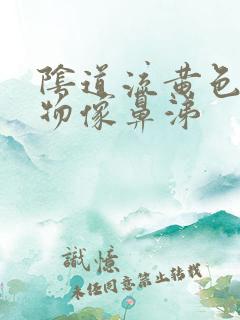 陰道流黄色
物像鼻涕
識憶
未经同意禁止转载